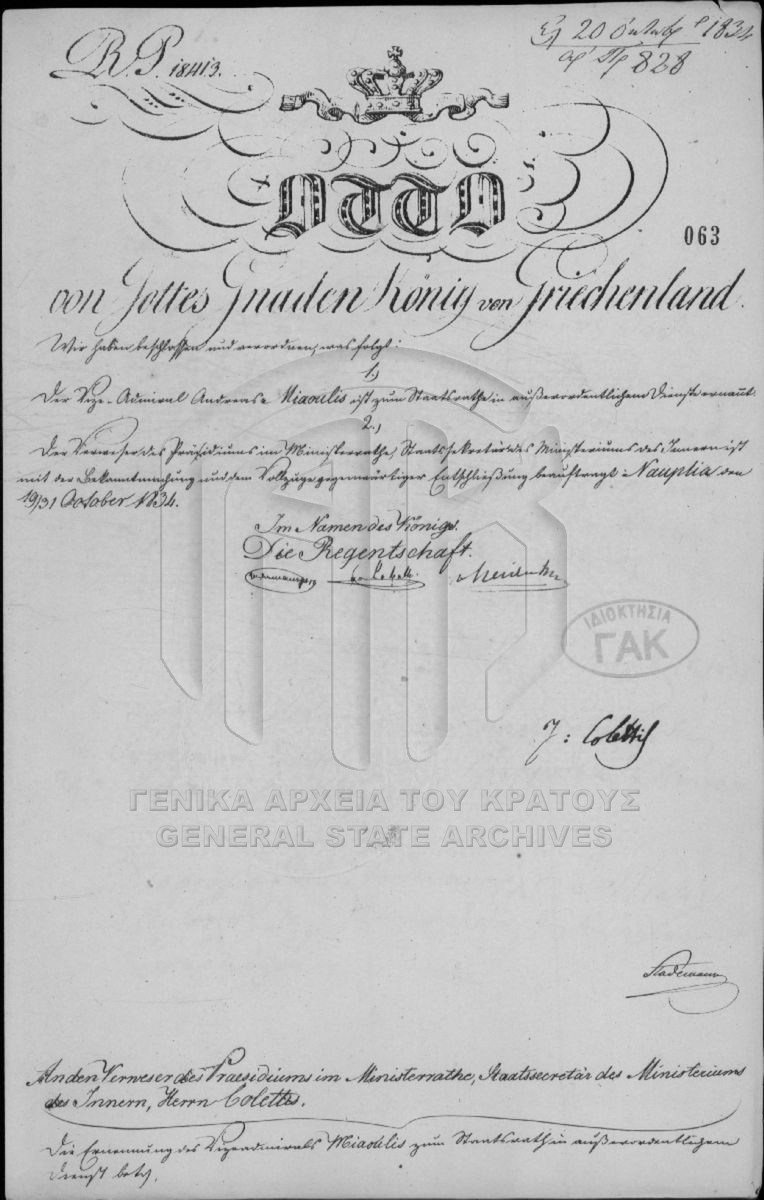 R.P. 18413.
Ελ 20 Οκτωβρ 1834
αρ Πρ 828
OTTO
063
von Gottes Gnaden König von Griechenland.
Wir haben beschlossen und verordnen, was folgt:
1.)
Der Vize-Admiral Andreas Miaoulis ist zum Staatsrathe in außerordentlichem Dienste ernannt.
2.)
Der Verweser des Präsidiums im Ministerrathe, Staatssekretär des Ministeriums des Innern ist
mit der Bekanntmachung und dem Vollzuge gegenwärtiger Entschließung beauftragt. Nauplia den
19/31 October 1834.
Im Namen des Königs.
Die Regentschaft.
ΙΔΙΟΚΤΗΣΙΑ
ΓΑΚ
J: Colettis
ΓΕΝΙΚΑ ΑΡΧΕΙΑ ΤΟΥ ΚΡΑΤΟΥΣ
GENERAL STATE ARCHIVES
Stademann
An den Verweser des Praesidiums im Ministerrathe, Staatssecretär des Ministeriums
des Innern, Herrn Colettis.
Die Ernennung des Vizeadmirals Miaoulis zum Staatsrath in außerordentlichem
Dienst betr.